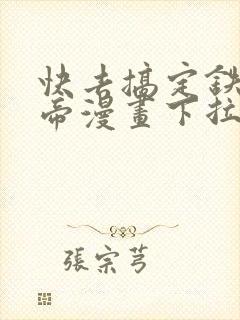 快去搞定鉄
帝漫畫下拉
張宗芎